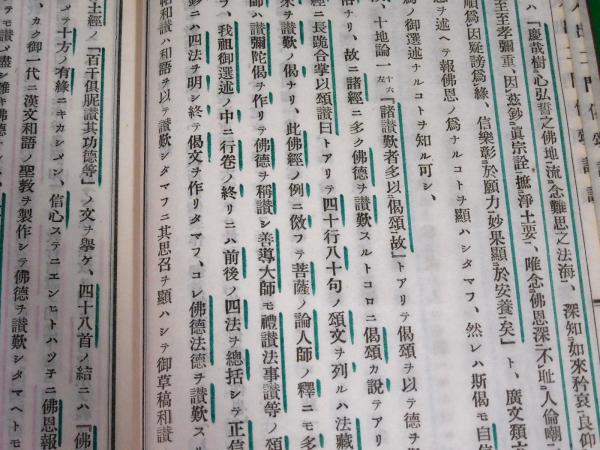 「慶哉樹心弘誓之佛地、流念難思之法海、深知如來矜哀良仰
至至孝彌重、因茲鈔眞宗詮、摭淨土要、唯念佛恩深、不恥人倫嘲
順爲因疑謗爲緣、信樂彰於願力、妙果顯於安養矣」ト、廣文類
ヲ述ヘテ報佛恩ノ爲ナルコトヲ顯ハシタマフ、然レハ斯偈モ自信
爲ノ御選述ナルコトヲ知ル可シ、
十地論一十六左「諸讃歎者多以偈頌故」トアリテ偈頌ヲ以テ德ヲ
諸ナリ、故ニ諸經ニ多ク佛德ヲ讃歎スルトコロニ偈頌カ說テアリ
經ニ長跪合掌以頌讃曰トアリテ四十行八十句ノ頌文ヲ列ルハ法藏
來ヲ讃歎ノ偈ナリ、此佛經ノ例ニ倣フテ菩薩ノ論人師ノ釋ニモ多
師ハ讃彌陀偈ヲ作リテ佛德ヲ稱讃シ善導大師モ禮讃法事讃等ノ頌
フ、我祖御選述ノ中ニ行卷ノ終リニハ前後ノ四法ヲ總括シテ正信
鈔ニハ四法ヲ明シ終テ偈文ヲ作リタマフ、コレ佛德法德ヲ讃歎スル
帖和讃ハ和語ヲ以テ讃歎シタマフニ其思召ヲ顯ハシテ御草稿和讃
土經ノ「百千俱胝讃其功德等」ノ文ヲ擧ケ、四十八首ノ結ニハ「佛
メテ十方ノ有緣ニキカシメン、信心ステニエンヒトハツネニ佛恩報
、カク御一代ニ漢文和語ノ聖教ヲ製作シテ佛德ヲ讃歎シタマヘトモ
テモ讃メ盡シ難キ佛德